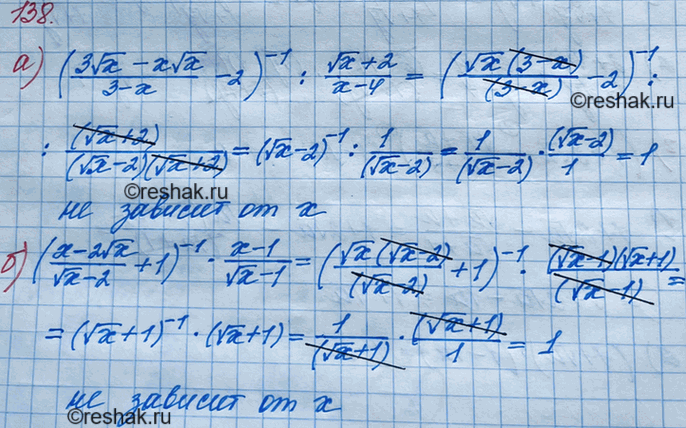 138.
а) ((3√x − x√x)/(3−x) − 2)⁻¹ : (√x + 2)/(x−4) = (√x (3−x)/(3−x) − 2)⁻¹ :
©reshak.ru
: (√x+2)/((√x−2)(√x+2)) = (√x−2)⁻¹ : 1/(√x−2) = 1/(√x−2) · (√x−2)/1 = 1
©reshak.ru
не зависит от x
б) ((x−2√x)/(√x−2) + 1)⁻¹ · (x−1)/(√x−1) = (√x (√x−2)/(√x−2) + 1)⁻¹ · (√x−1)(√x+1)/(√x−1) =
= (√x+1)⁻¹ · (√x+1) = 1/(√x+1) · (√x+1)/1 = 1
не зависит от x
©reshak.ru
©reshak.ru